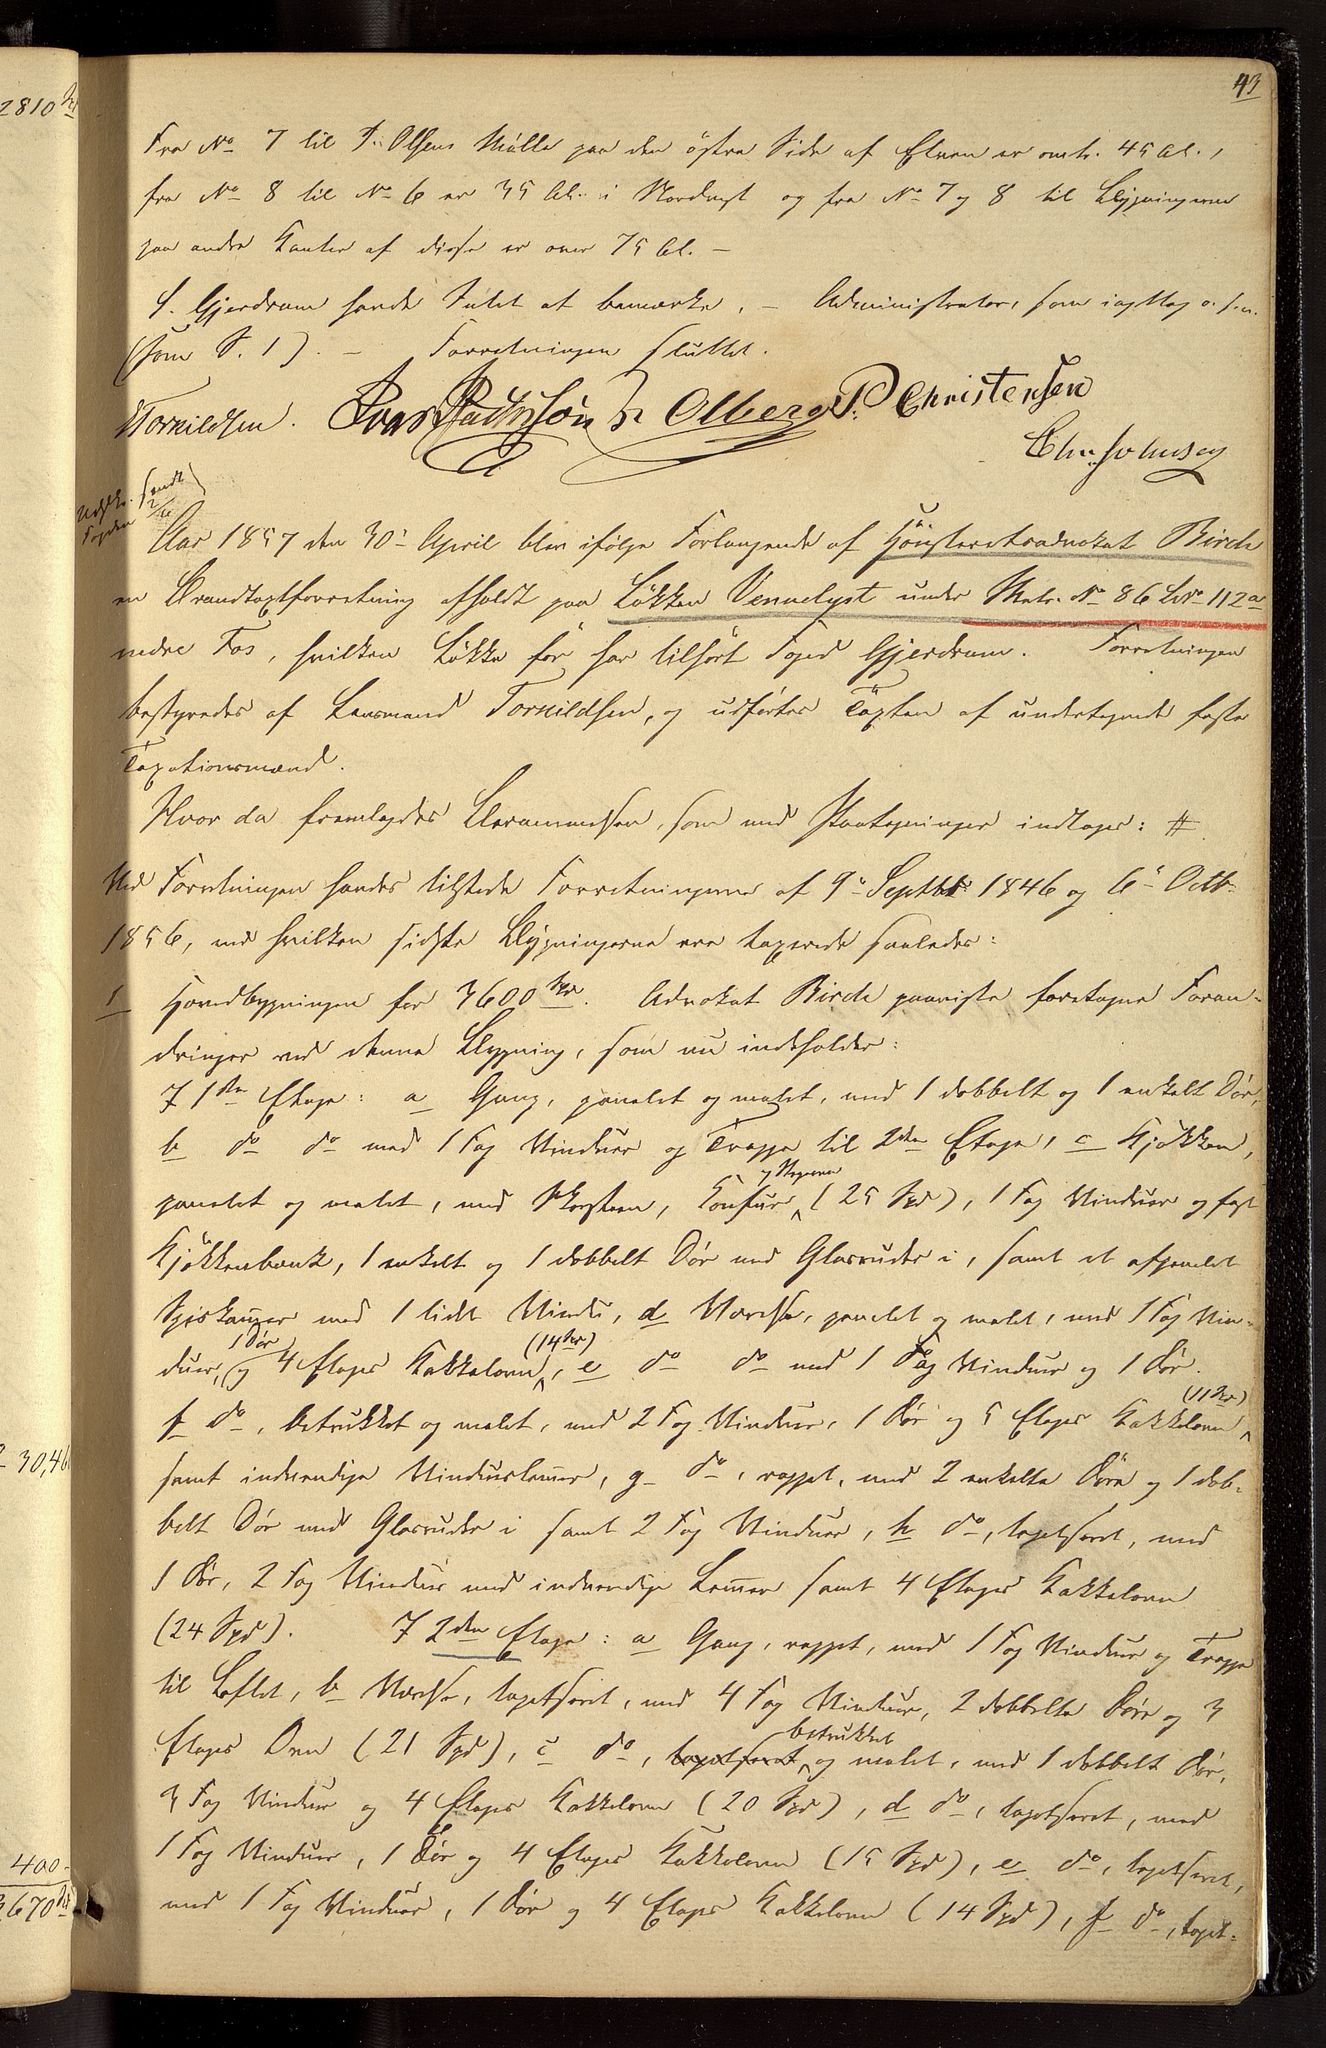 43
2810
Fra No 7 til T. Olsens Mølle paa den østre Side af Elven er omtr. 45 Al.,
fra No 8 til No 6 er 35 Al. i Nordvest og fra No 7 og 8 til Bygningerne
paa andre Kanter af disse er over 75 Al. –
S. Gjerdrum havde Intet at bemærke. – Administrator, som iagttog o.s.v.
(som S. 1). – Forretningen sluttet.
Torkildsen. Olberg P. Christensen
Chr. Johnsen
Udskr. sendt
Fogden
Aar 1857 den 30te April blev ifølge Forlangende af Høiesteretsadvokat Birch
en Brandtaxtforretning afholdt paa Løkken Vennelyst under Matr. No 86 LNo 112a
nedre Fos, hvilken Løkke før har tilhørt Foged Gjerdrum. Forretningen
bestyredes af Lensmand Torkildsen, og udførtes Taxten af undertegnede faste
Taxationsmænd.
Hvor da fremlagdes Berammelsen, som med Paategninger indtages: #
Ved Forretningen havdes tilstede Forretningerne af 9de Septbr 1846 og 6te Octb.
1856, ved hvilken sidste Bygningerne ere taxerede saaledes:
1 Hovedbygningen for 3600 Spd. Advokat Birch paaviste foretagne Foran-
dringer ved denne Bygning, som nu indeholder:
I 1ste Etage: a Gang, panelet og malet, med 1 dobbelt og 1 enkelt Dør,
b do do med 1 Fag Vinduer og Trappe til 2den Etage, c Kjøkken,
panelet og malet, med Skorsteen, Komfur (25 Spd), 1 Fag Vinduer og fast
Kjøkkenbænk, 1 enkelt og 1 dobbelt Dør med Glasruder i, samt et afpanelet
Spiskammer med 1 lidet Vindu, d Værelse, panelet og malet, med 1 Fag Vin-
duer, 1 Dør og 4 Etages Kakkelovn (14 Spd), e do do med 1 Fag Vinduer og 1 Dør.
f do, betrukket og malet, med 2 Fag Vinduer, 1 Dør og 5 Etages Kakkelovn (11 Spd)
samt indvendige Vinduslemmer, g do, rappet, med 2 enkelte Døre og 1 dob-
belt Dør med Glasruder i samt 2 Fag Vinduer, h do, tapetseret, med
1 Dør, 2 Fag Vinduer med indvendige Lemmer samt 4 Etages Kakkelovn
(24 Spd). I 2den Etage: a Gang, rappet, med 1 Fag Vinduer og Trappe
til Loftet, b Værelse, tapetseret, med 4 Fag Vinduer, 2 dobbelte Døre og 3
Etages Ovn (21 Spd), c do, tapetseret betrukket og malet, med 1 dobbelt Dør,
3 Fag Vinduer og 4 Etages Kakkelovn (20 Spd), d do, tapetseret, med
1 Fag Vinduer, 1 Dør og 4 Etages Kakkelovn (15 Spd), e do, tapetseret,
med 1 Fag Vinduer, 1 Dør og 4 Etages Kakkelovn (14 Spd), f do, tapet-
400